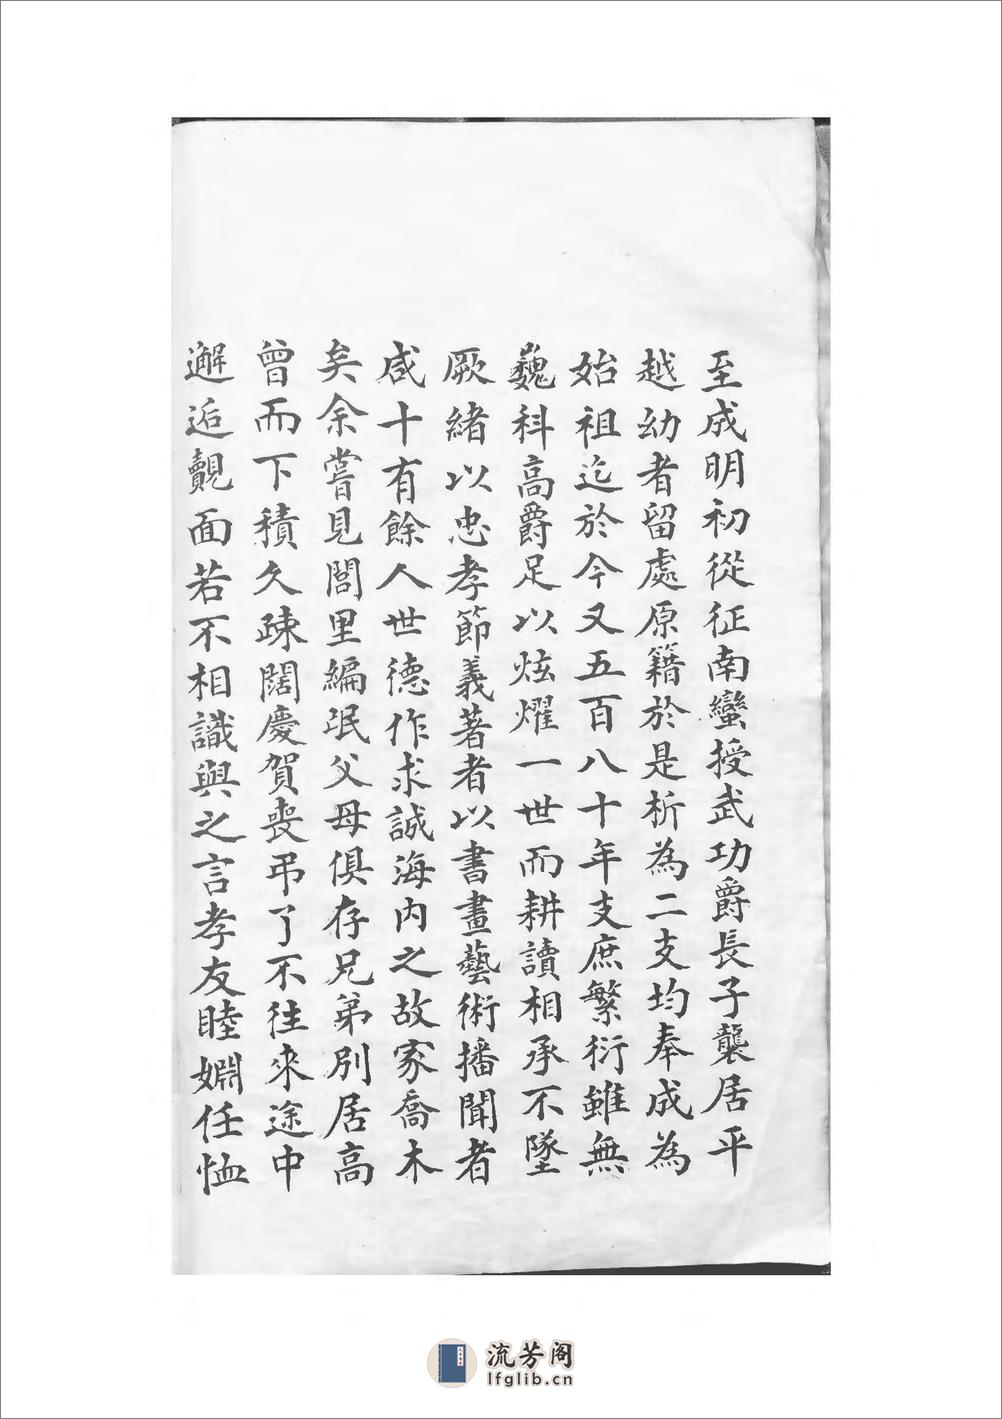 至成明初從征南蠻授武功爵長子襲居平
越幼者留處原籍於是析為二支均奉成為
始祖迄於今又五百八十年支庶繁衍雖無
巍科高爵足以炫燿一世而耕讀相承不墜
厥緒以忠孝節義著者以書畫藝術播聞者
咸十有餘人世德作求誠海內之故家喬木
矣余嘗見閭里編氓父母俱存兄弟別居高
曾而下積久疎闊慶賀喪弔了不往來途中
邂逅覿面若不相識與之言孝友睦婣任恤
流芳阁
lfglib.cn